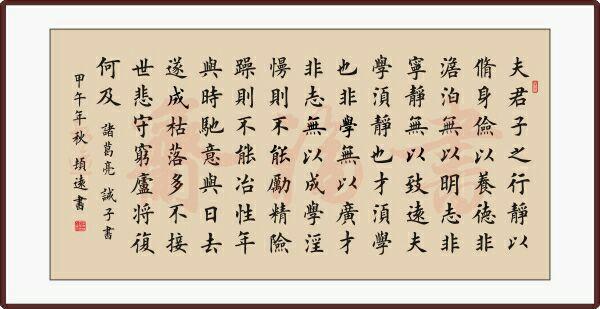 夫君子之行靜以
脩身儉以養德非
澹泊無以明志非
寧靜無以致遠夫
學湏靜也才湏學
也非學無以廣才
非志無以成學淫
慢則不能勵精險
躁則不能冶性年
與時馳意與日去
遂成枯落多不接
世悲守窮廬將復
何及 諸葛亮 誡子書
甲午年秋 遠書